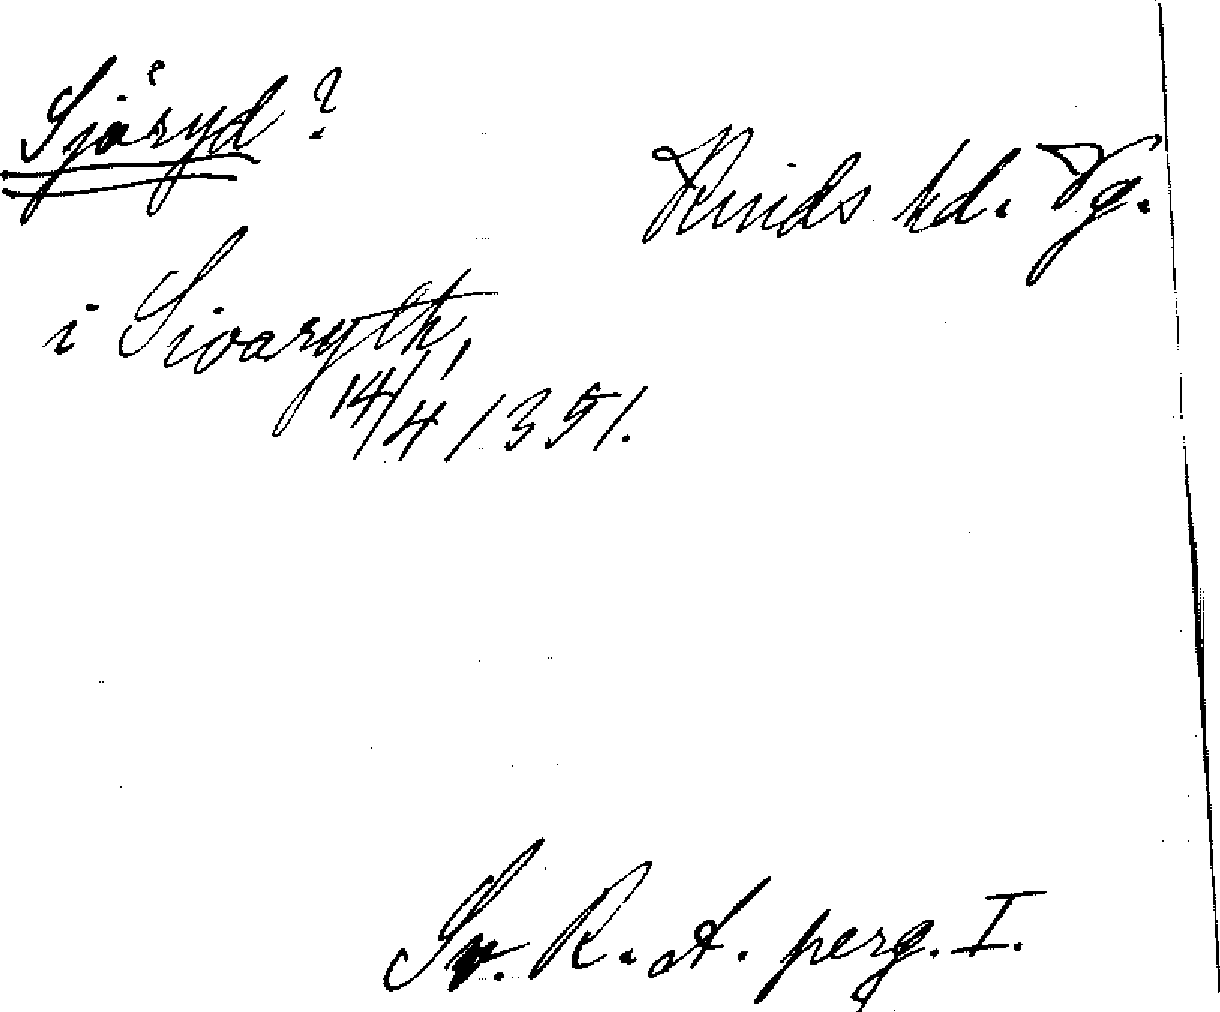 Sjöryd?
Kinds hd. Vg.
i Sioaryth,
14/4 1351.
Sv. R. A. perg. I.